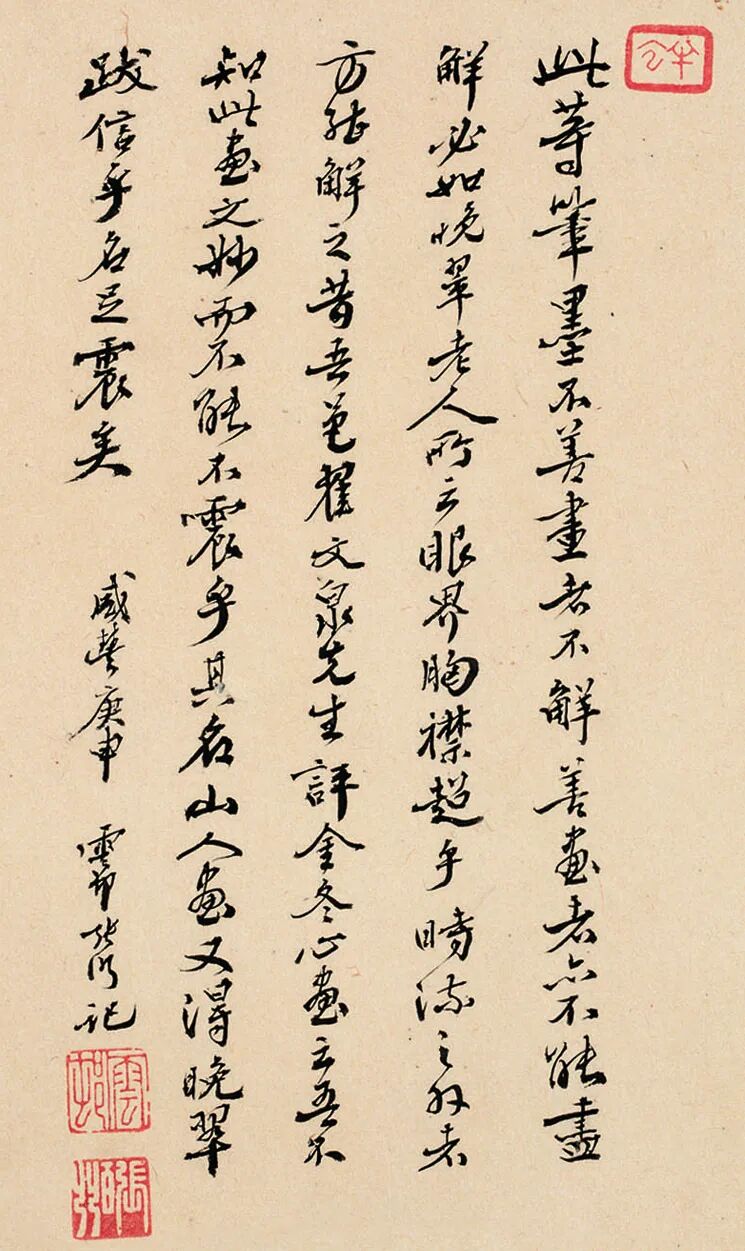 此等筆墨不善畫者不解善画者亦不能盡
解必如晚翠老人所云眼界胸襟超乎時流之外者
方能解之昔吾邑翟文泉先生評金冬心畫云吾不
知此畫之妙而不能不震乎其名山人画又得晚翠
跋信乎名足震矣
咸豐庚申 雲
記